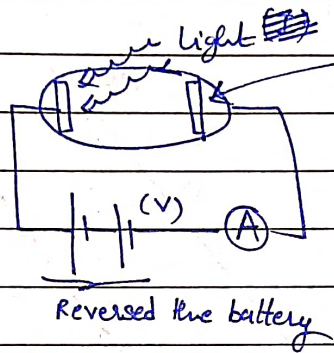 Light
(V)
A
Reversed the battery